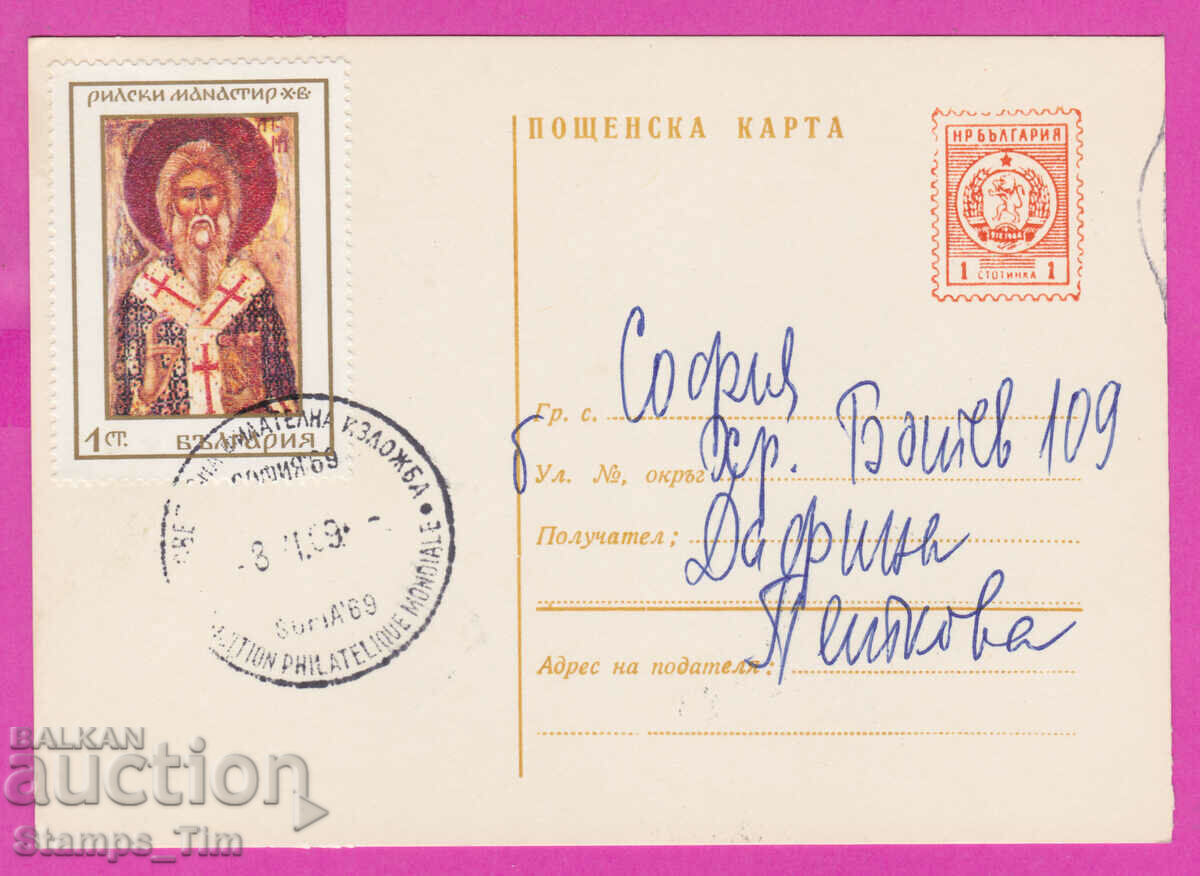 РИЛСКИ МАНАСТИР·Х·В·
1 СТ. БЪЛГАРИЯ
ФИЛАТЕЛНА ИЗЛОЖБА
СОФИЯ'69
SOFIA'69
PHILATELIQUE MONDIALE
ПОЩЕНСКА КАРТА
НРБЪЛГАРИЯ
1 СТОТИНКА 1
Гр. с. София
б
Ул. №, окръг Хр. Ботев 109
Получател: Дафрина
Петкова
Адрес на подателя:
BALKAN
auction
Stamps_Tim